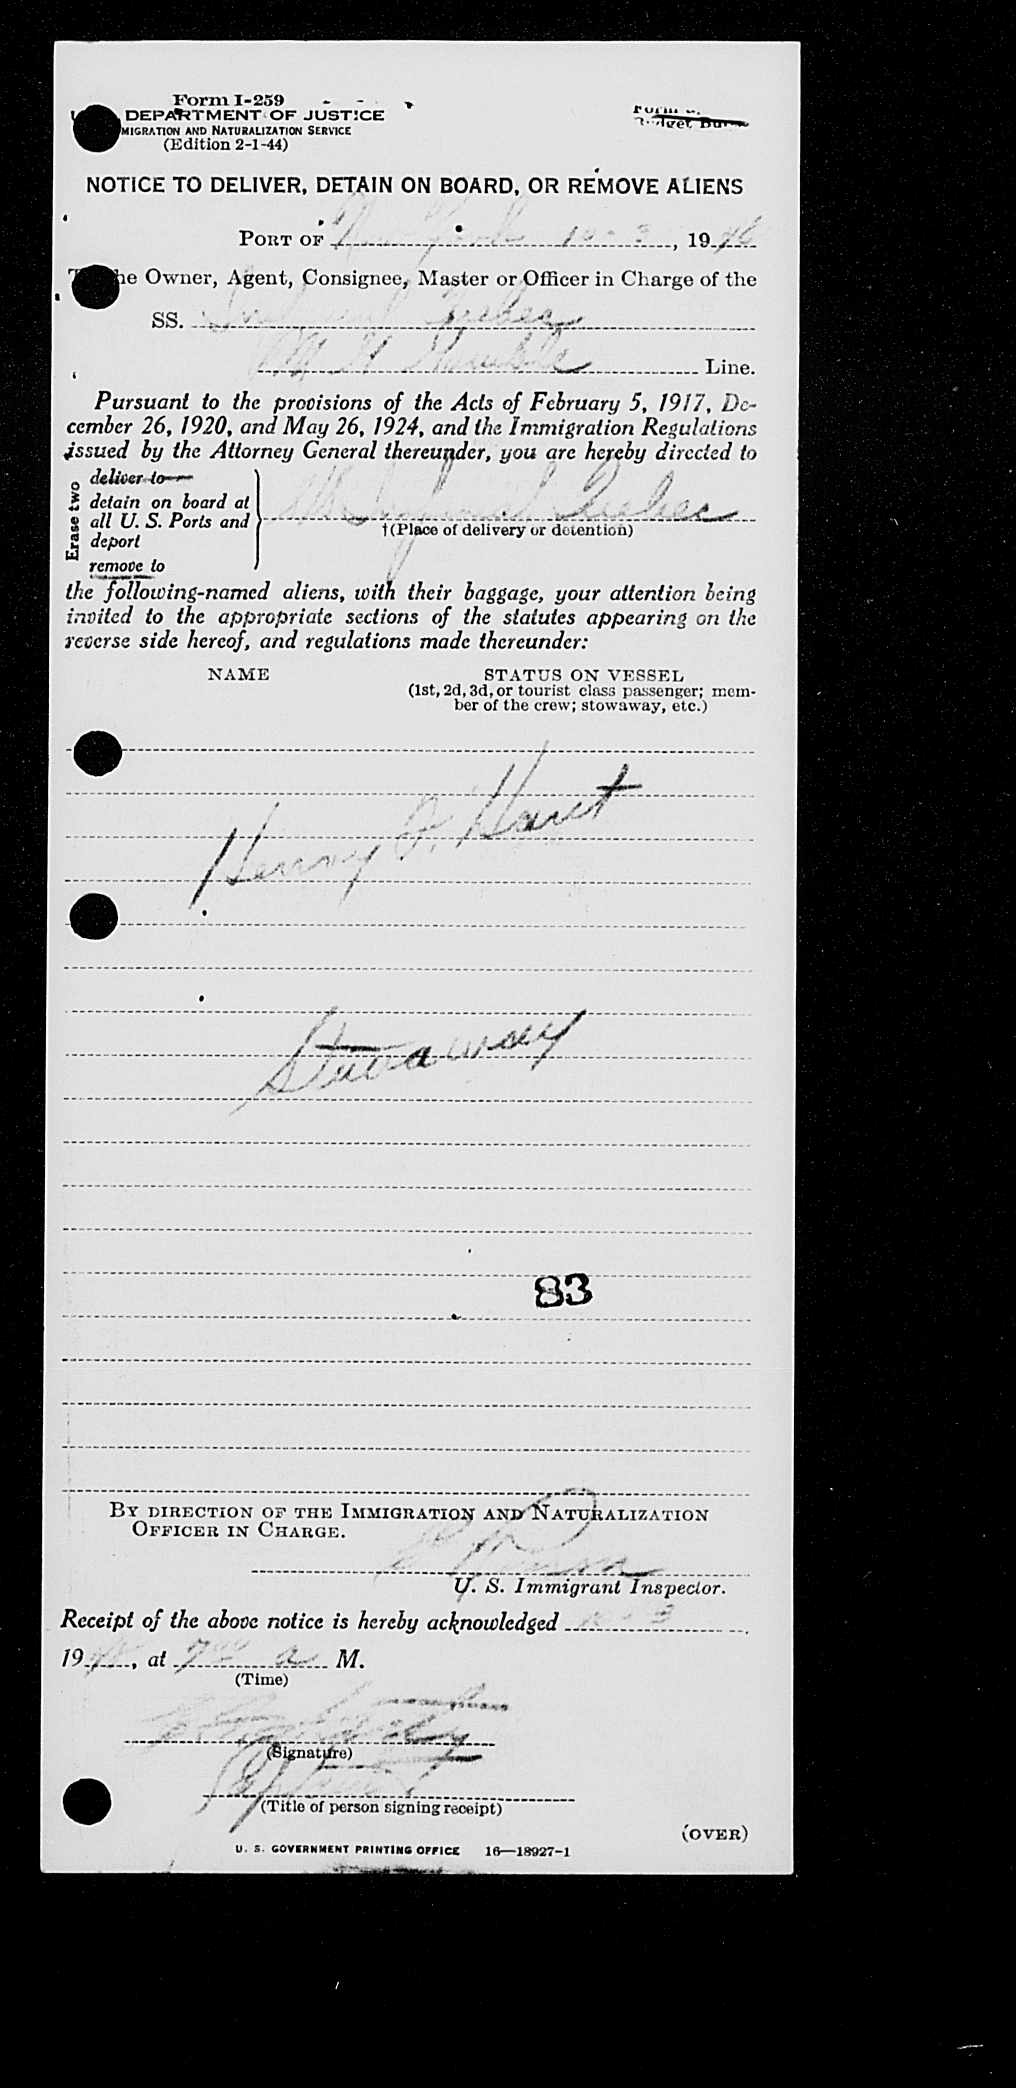 Form I-259
DEPARTMENT OF JUSTICE
MIGRATION AND NATURALIZATION SERVICE
(Edition 2-1-44)
NOTICE TO DELIVER, DETAIN ON BOARD, OR REMOVE ALIENS
PORT OF New York 10-3, 1946
he Owner, Agent, Consignee, Master or Officer in Charge of the
SS. Quebec
Line.
Pursuant to the provisions of the Acts of February 5, 1917, De-
cember 26, 1920, and May 26, 1924, and the Immigration Regulations
issued by the Attorney General thereunder, you are hereby directed to
Erase two
deliver to
detain on board at
all U. S. Ports and
deport
remove to
Quebec
†(Place of delivery or detention)
the following-named aliens, with their baggage, your attention being
invited to the appropriate sections of the statutes appearing on the
reverse side hereof, and regulations made thereunder:
NAME STATUS ON VESSEL
(1st, 2d, 3d, or tourist class passenger; mem-
ber of the crew; stowaway, etc.)
Henry
Stowaway
83
BY DIRECTION OF THE IMMIGRATION AND NATURALIZATION
OFFICER IN CHARGE.
U. S. Immigrant Inspector.
Receipt of the above notice is hereby acknowledged 10-3
19, at 7 a M.
(Time)
(Signature)
Captain
(Title of person signing receipt)
(OVER)
U. S. GOVERNMENT PRINTING OFFICE 16—18927-1